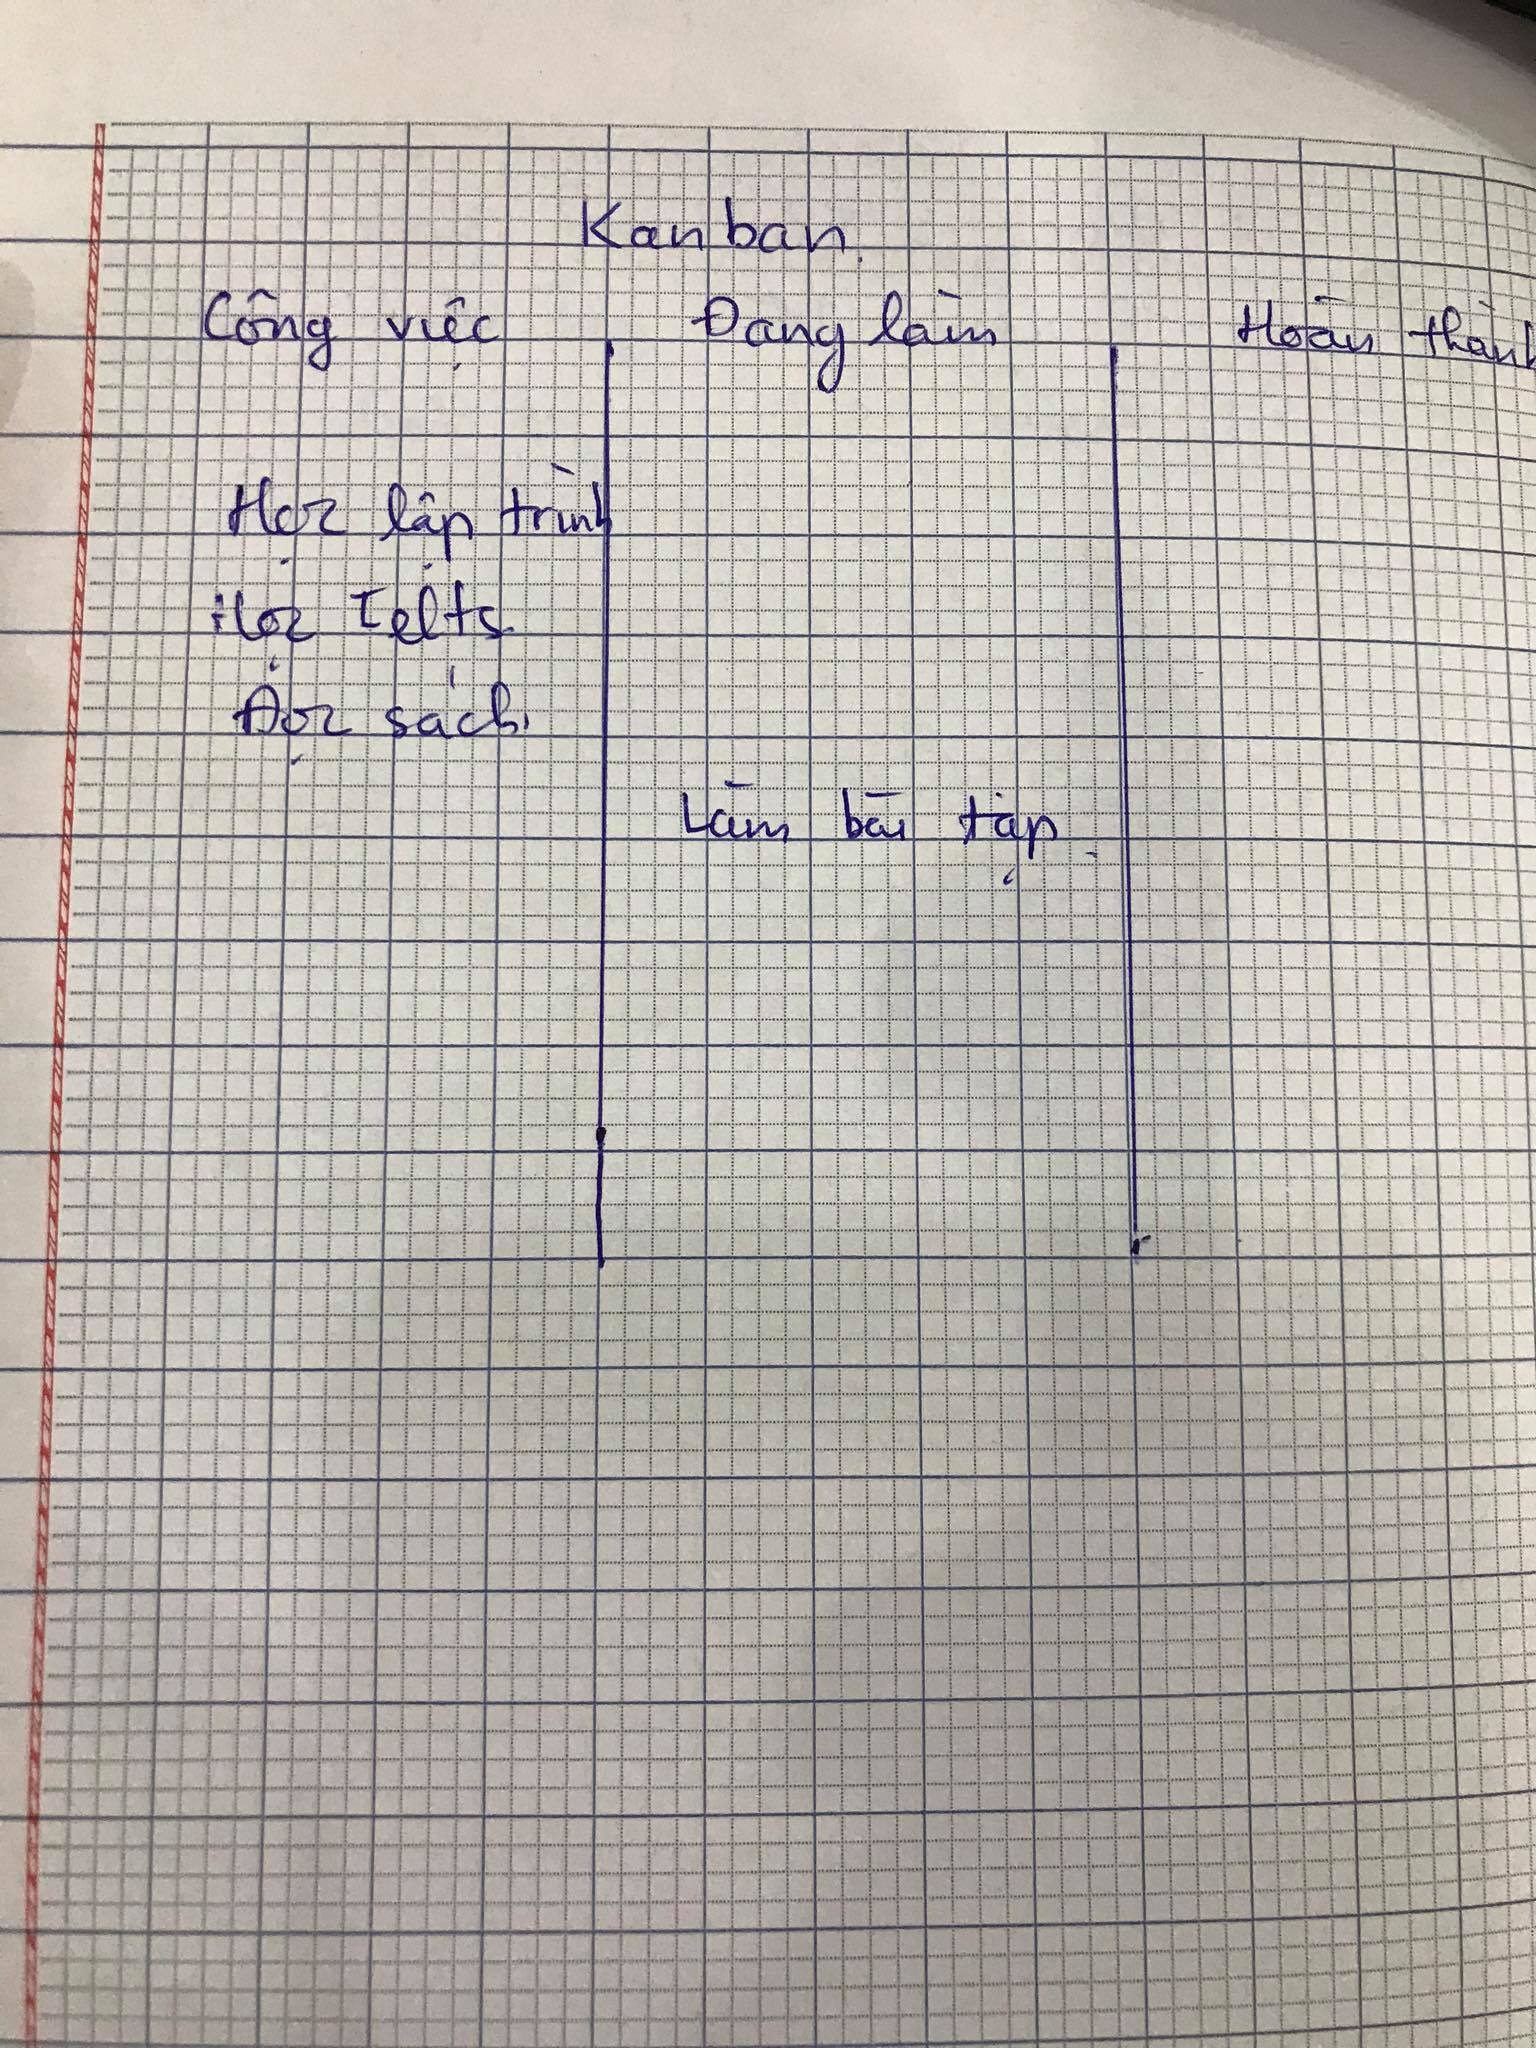 Kanban.
Công việc Đang làm Hoàn thành
Học lập trình
Học Ielts
Đọc sách
Làm bài tập